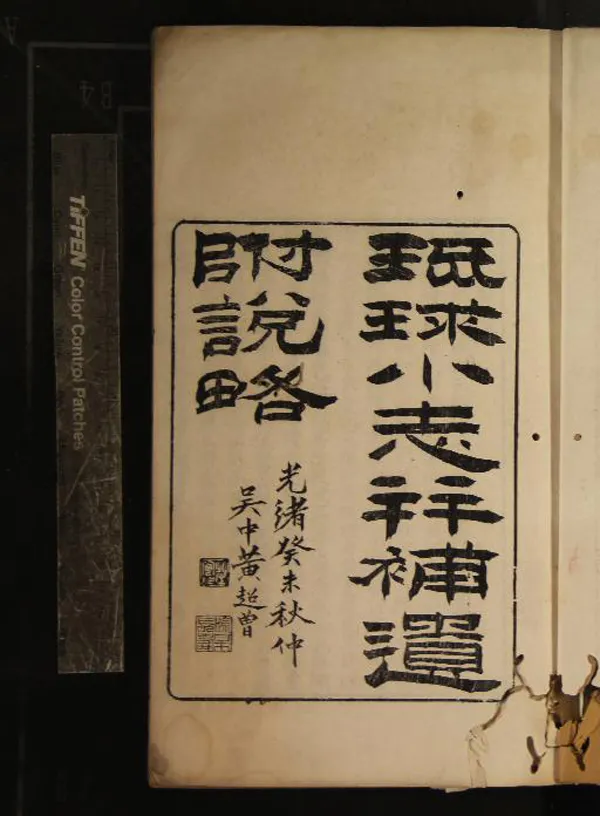 琉球小志并補遺
附說略
光緒癸未秋仲
吳中黃超曾
TIFFEN Color Control Patches